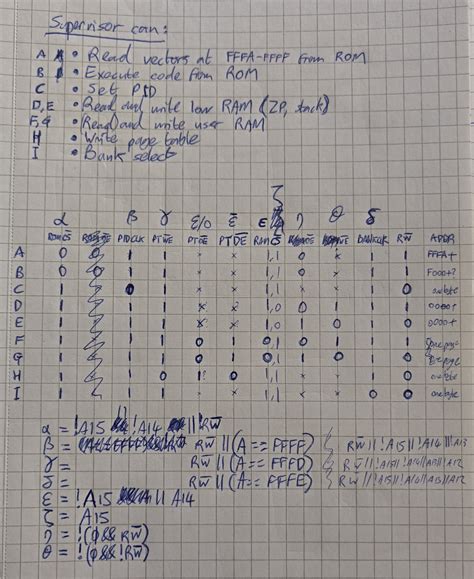 Supervisor can:
A • Read vectors at FFFA-FFFF from ROM
B • Execute code from ROM
C • Set PID
D, E • Read and write low RAM (ZP, stack)
F, G • Read and write user RAM
H • Write page table
I • Bank select
α β γ ε/0 ε̅ η θ δ
ROMC̅S̅ PIDCLK PTW̅E̅ PTO̅E̅ PTD̅E̅ RAMCS BANKCLK RW̅ ADDR
A 0 0 1 1 x x 1,1 0 x 1 1 FFFA+
B 0 0 1 1 x x 1,1 0 x 1 1 F000+?
C 1 0 1 x x 1,1 1 0 onebyte
D 1 1 1 x x 1,0 0 1 1 1 0000+
E 1 1 1 x x 1 0 1 0 0000+
F 1 1 1 0 1 0 1 1 1
G 1 1 1 0 1 1 0 1 0
H 1 1 0 1? 0 1,1 1 1 0 onebyte
I 1 1 1 x x 1,1 1 0 0 onebyte
α = !A15 || !A14 || !RW̅
β = RW̅ || (A == FFFF) RW̅ || !A15 || !A14 || !A13
γ = RW̅ || (A == FFFD)
δ = RW̅ || (A == FFFE)
ε = !A15 || A14
ζ = A15
η = !(φ && RW̅)
θ = !(φ && !RW̅)